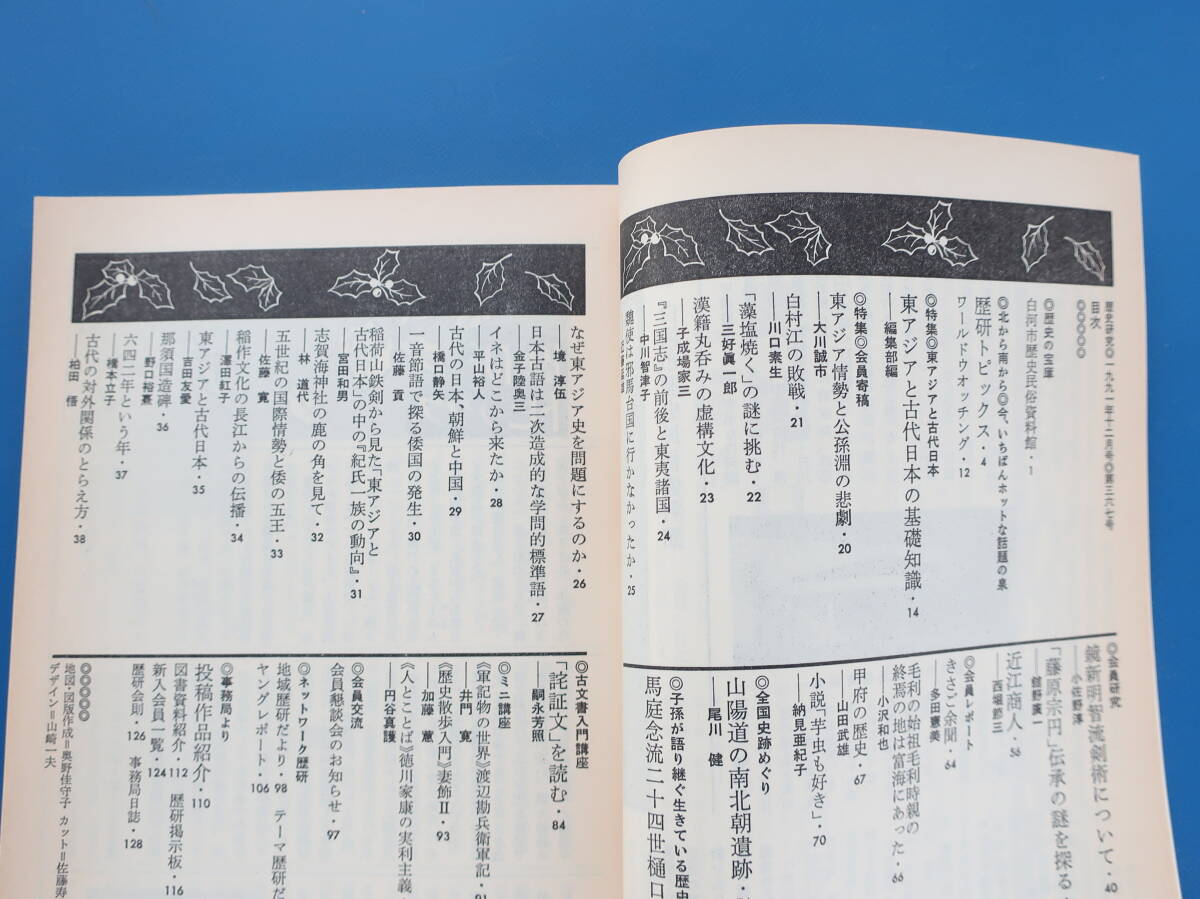 歴史研究◎一九九一年十二月号◎第三六七号
目次
◎◎◎◎◎
◎歴史の宝庫
白河市歴史民俗資料館・1
◎北から南から◎今、いちばんホットな話題の泉
歴研トピックス・4
ワールドウオッチング・12
◎特集◎東アジアと古代日本
東アジアと古代日本の基礎知識・14
──編集部編
◎特集◎会員寄稿
東アジア情勢と公孫淵の悲劇・20
──大川誠市
白村江の敗戦・21
──川口素生
「藻塩焼く」の謎に挑む・22
──三好眞一郎
漢籍丸呑みの虚構文化・23
──子成場家三
『三国志』の前後と東夷諸国・24
──中川智津子
魏使は邪馬台国に行かなかったか・25
◎会員研究
鏡新明智流剣術について・40
──小佐野淳
「藤原宗円」伝承の謎を探る
──舘野廣一
近江商人・56
──西堀節三
きさご余聞・64
──多田憲美
◎会員レポート
毛利の始祖毛利時親の
終焉の地は富海にあった・66
──小沢和也
甲府の歴史・67
──山田武雄
小説「芋虫も好き」・70
──納見亜紀子
◎全国史跡めぐり
山陽道の南北朝遺跡・
──尾川 健
◎子孫が語り継ぐ生きている歴史
馬庭念流二十四世樋口
なぜ東アジア史を問題にするのか・26
──境 淳伍
日本古語は二次造成的な学問的標準語・27
──金子陸奥三
イネはどこから来たか・28
──平山裕人
古代の日本、朝鮮と中国・29
──橋口静矢
一音節語で探る倭国の発生・30
──佐藤 貢
稲荷山鉄剣から見た「東アジアと
古代日本」の中の『紀氏一族の動向』・31
──宮田和男
志賀海神社の鹿の角を見て・32
──林 道代
五世紀の国際情勢と倭の五王・33
──佐藤 寛
稲作文化の長江からの伝播・34
──澤田紅子
東アジアと古代日本・35
──吉田友愛
那須国造碑・36
──野口裕嘉
六四二年という年・37
──橋本立子
古代の対外関係のとらえ方・38
──柏田 悟
◎古文書入門講座
「詫証文」を読む・84
──嗣永芳照
◎ミニ講座
《軍記物の世界》渡辺勘兵衛軍記・91
──井門 寛
《歴史散歩入門》妻飾Ⅱ・93
──加藤 蕙
《人とことば》徳川家康の実利主義
──円谷真護
◎会員交流
会員懇談会のお知らせ・97
◎ネットワーク歴研
地域歴研だより・98 テーマ歴研だ
ヤングレポート・106
◎事務局より
投稿作品紹介・110
図書資料紹介・112 歴研掲示板・116
新入会員一覧・124
歴研会則・126 事務局日誌・128
◎◎◎◎◎
地図・図版作成＝奥野佳守子 カット＝佐藤寿
デザイン＝山崎一夫